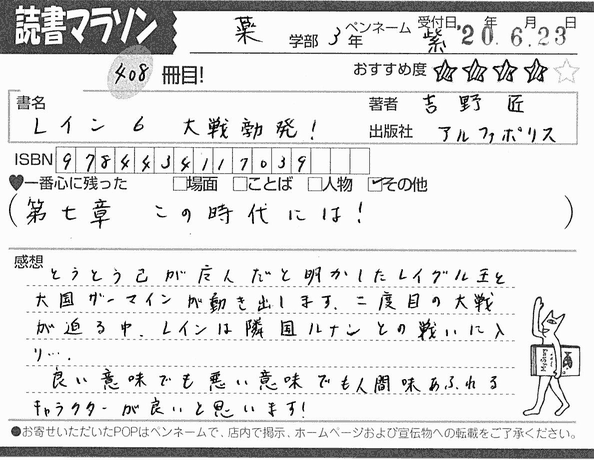 読書マラソン 薬 学部 3年 ペンネーム 紫 受付日 '20年6月23日
408冊目! おすすめ度 ★★★★☆
書名 レイン6 大戦勃発! 著者 吉野 匠
出版社 アルファポリス
ISBN 9784434117039
♥一番心に残った □場面 □ことば □人物 ☑その他
(第七章 この時代には!)
感想
とうとう己が魔人だと明かしたレイグル王と
大国ザーマインが動き出します。二度目の大戦
が迫る中、レインは隣国ルナンとの戦いに入
り…。
良い意味でも悪い意味でも人間味あふれる
キャラクターが良いと思います!
Mystery
●お寄せいただいたPOPはペンネームで、店内で掲示、ホームページおよび宣伝物への転載をご了承ください。